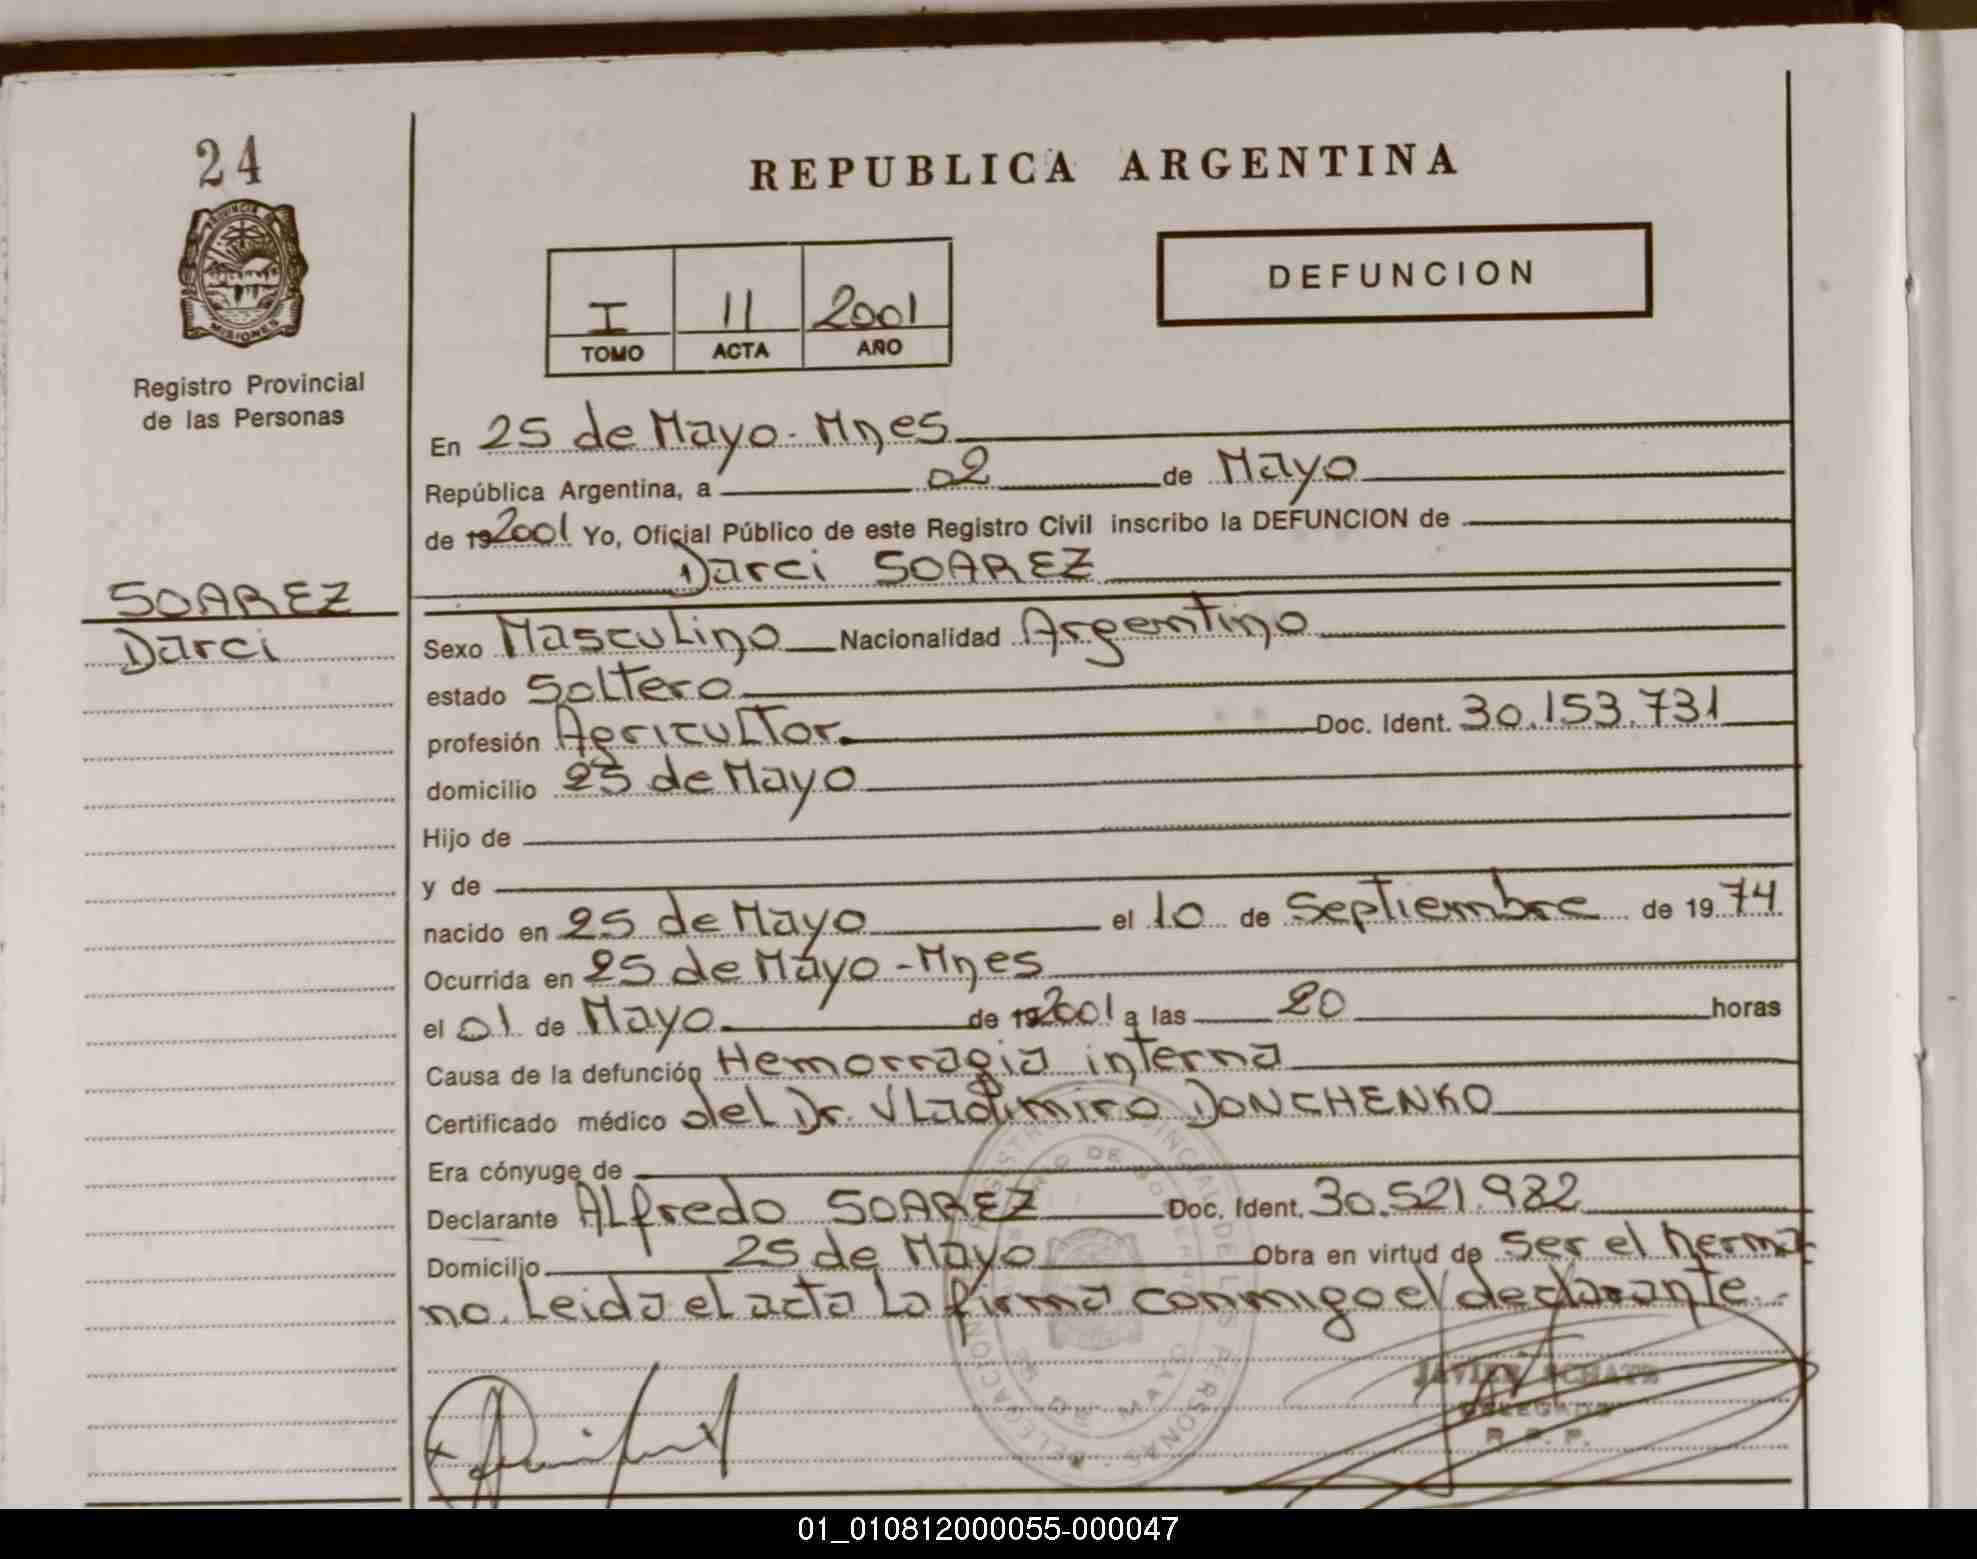 24
PROVINCIA DE
MISIONES
Registro Provincial
de las Personas
SOAREZ
Darci
REPUBLICA ARGENTINA
DEFUNCION
I 11 2001
TOMO ACTA AÑO
En 25 de Mayo - Mnes
República Argentina, a 02 de Mayo
de 192001 Yo, Oficial Público de este Registro Civil inscribo la DEFUNCION de
Darci SOAREZ
Sexo Masculino Nacionalidad Argentino
estado Soltero
profesión Agricultor. Doc. Ident. 30.153.731
domicilio 25 de Mayo
Hijo de
y de
nacido en 25 de Mayo el 10 de Septiembre de 1974
Ocurrida en 25 de Mayo - Mnes
el 01 de Mayo de 192001 a las 20 horas
Causa de la defunción Hemorragia interna
Certificado médico del Dr. Vladimiro DONCHENKO
Era cónyuge de
Declarante Alfredo SOAREZ Doc. Ident. 30.521.982
Domicilio 25 de Mayo Obra en virtud de Ser el herma-
no. Leida el acta la firma conmigo el declarante.-
JAVIER
DELEGADO
R. P. P.
01_010812000055-000047